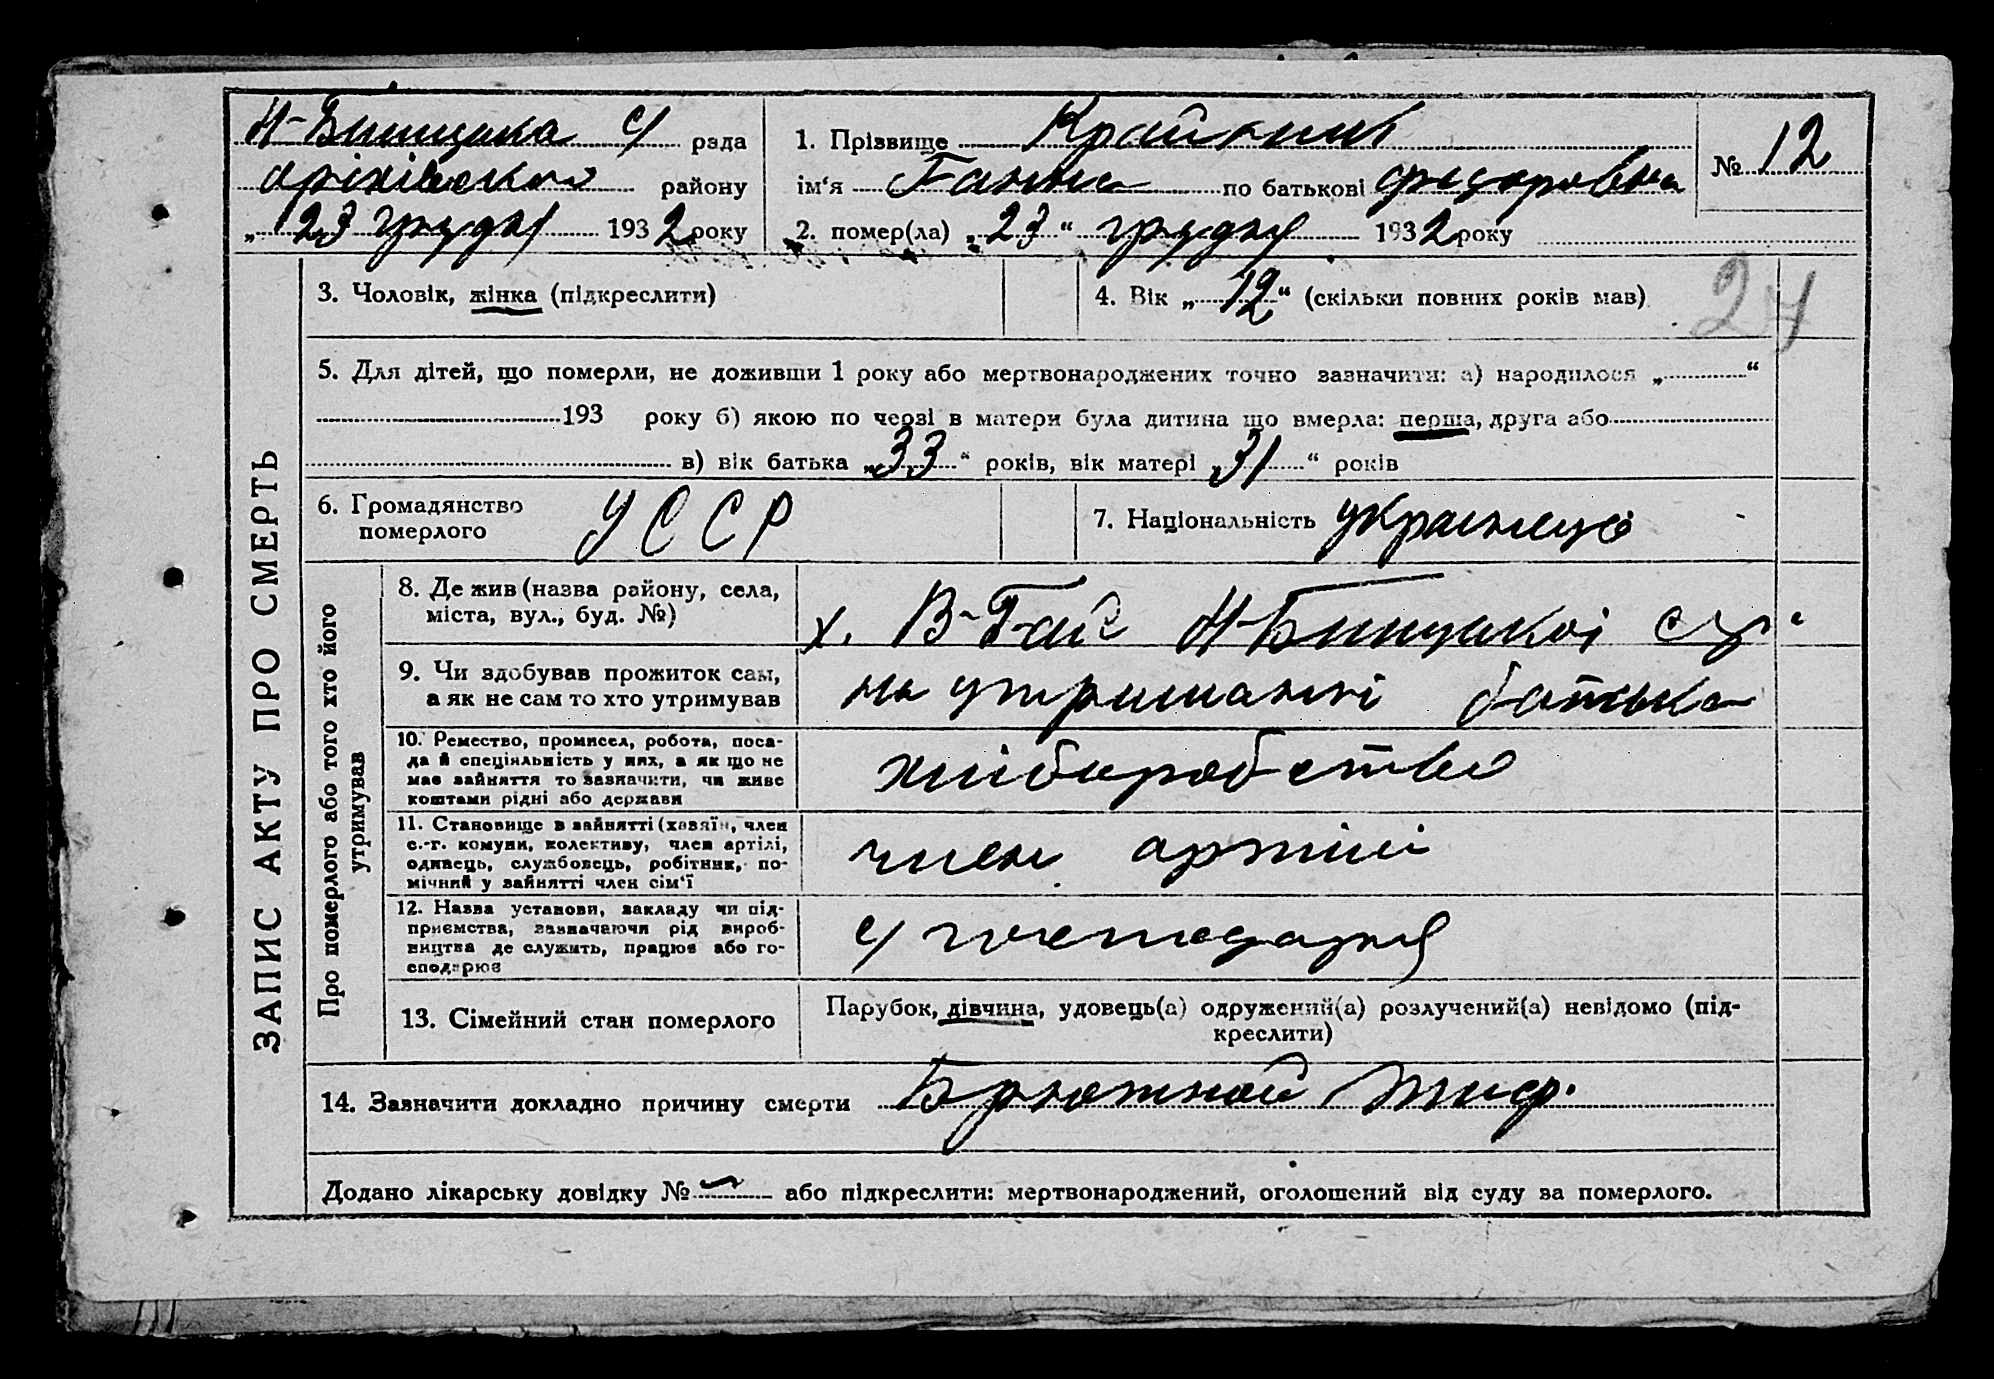 Н-Білицька с/ рада
району
„23 грудня 1932 року
1. Прізвище Крайній
ім‘я Ганна по батькові Федоровна
2. помер(ла) „23“ грудня 1932 року
№ 12
3. Чоловік, жінка (підкреслити)
4. Вік „12“ (скільки повних років мав)
24
5. Для дітей, що померли, не доживши 1 року або мертвонароджених точно зазначити: а) народилося „ “
193 року б) якою по черзі в матери була дитина що вмерла: перша, друга або
в) вік батька „33“ років, вік матері „31“ років
6. Громадянство померлого
УССР
7. Національність українці
ЗАПИС АКТУ ПРО СМЕРТЬ
Про померлого або того хто його утримував
8. Де жив (назва району, села,
міста, вул., буд. №)
х. В-Гай с/р
9. Чи здобував прожиток сам,
а як не сам то хто утримував
на утриманні батька
10. Ремество, промисел, робота, поса-
да й спеціяльність у них, а як що не
має зайняття то зазначити, чи живе
коштами рідні або держави
хліборобство
11. Становище в зайнятті (хазяїн, член
с.-г. комуни, колективу, член артілі,
одинець, службовець, робітник, по-
мічний у зайнятті член сім‘ї
член артілі
12. Назва установи, закладу чи під-
приємства, зазначаючи рід вироб-
ництва де служить, працює або го-
сподарює
с/ господарня
13. Сімейний стан померлого
Парубок, дівчина, удовець(а) одружений(а) розлучений(а) невідомо (під-
креслити)
14. Зазначити докладно причину смерти Брюжной тиф.
Додано лікарську довідку № або підкреслити: мертвонароджений, оголошений від суду за померлого.